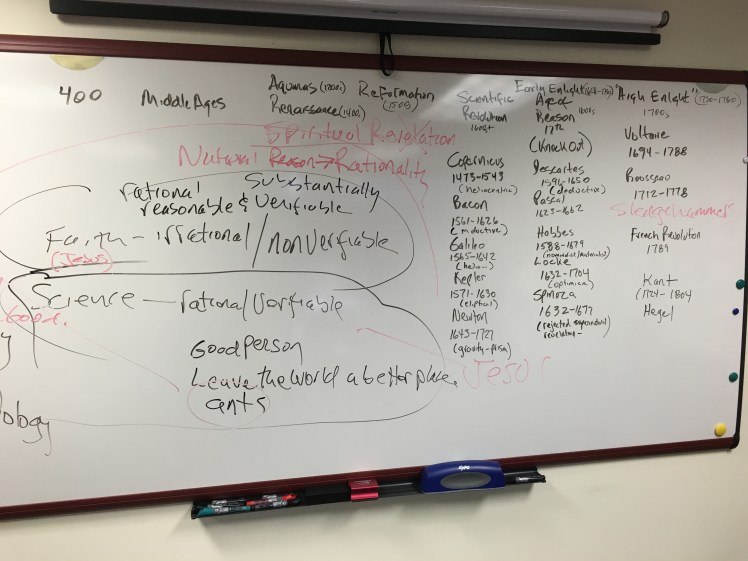 400
Middle Ages
Aquinas (1200s)
Renaissance (1400s)
Reformation
(1500s)
Spiritual Revelation
Natural Reason → Rationality
rational substantially
reasonable & Verifiable
Faith - irrational / nonverifiable
Jesus
Science — rational / verifiable
Good person
Leave the world a better place.
ants
ology
Scientific
Revolution
1600s+
Copernicus
1473-1543
(heliocentric)
Bacon
1561-1626
(inductive)
Galileo
1565-1642
(helio-)
Kepler
1571-1630
(eliptical)
Newton
1643-1727
(gravity-prism)
Early Enlight
Age of
Reason 1600s
17th
(Knock Out)
Descartes
1596-1650
(deductive)
Pascal
1623-1662
Hobbes
1588-1679
Locke
1632-1704
(optimism)
Spinoza
1632-1677
(rejected supernatural
revelation-
"High Enlight" (1730-1780)
1700s
Voltaire
1694-1788
Rousseau
1712-1778
Sledgehammer
French Revolution
1789
Kant
(1724-1804
Hegel